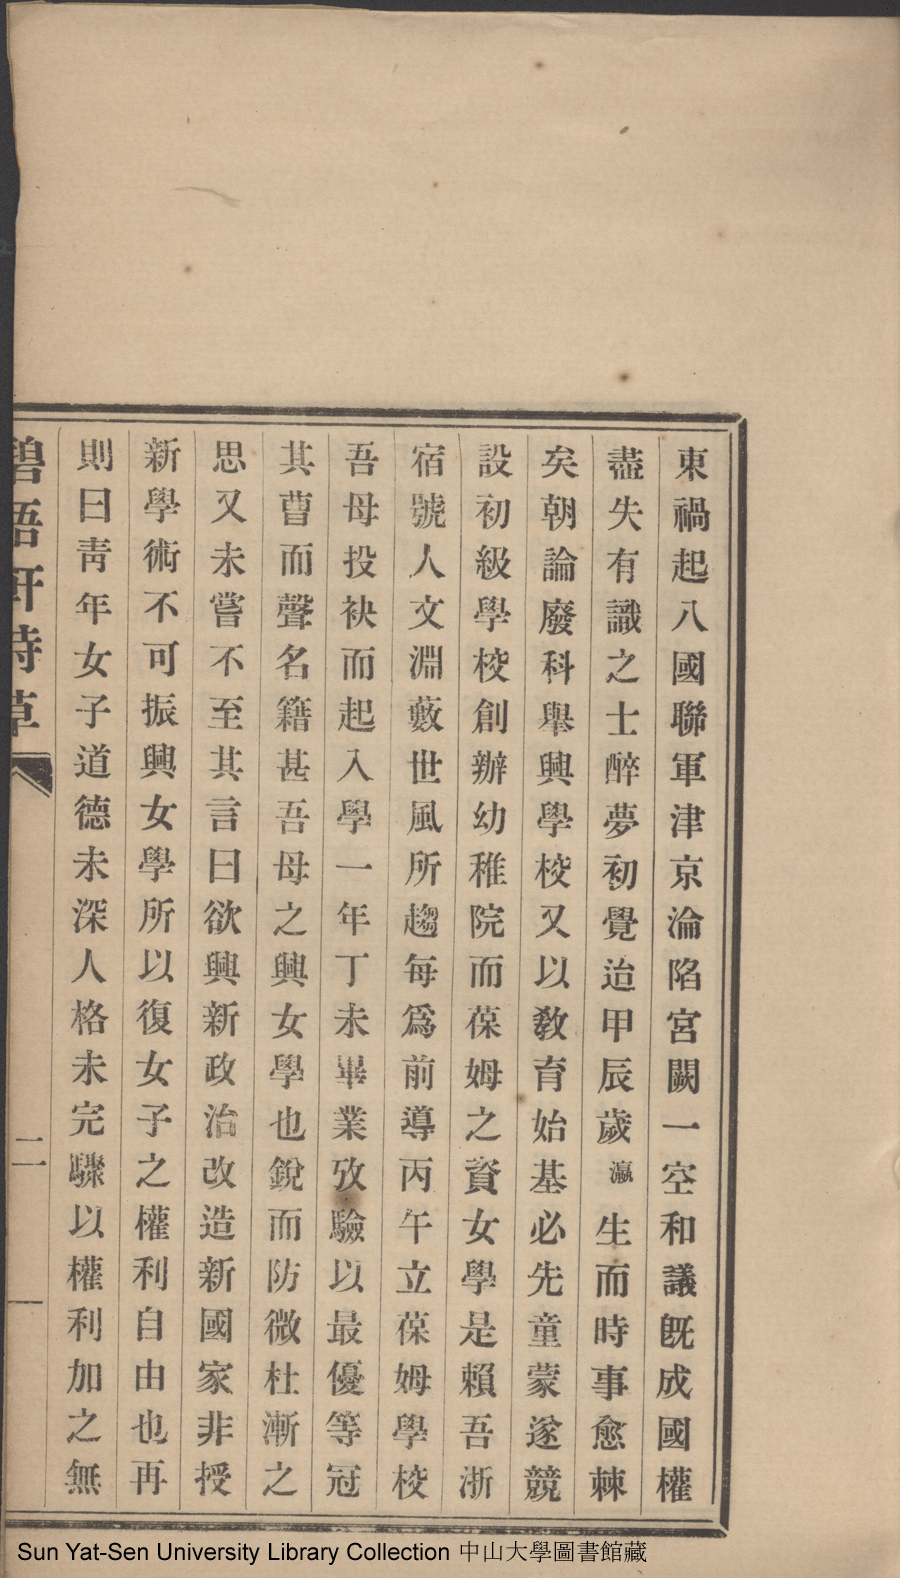 東禍起八國聯軍津京淪陷宮闕一空和議旣成國權
盡失有識之士醉夢初覺迨甲辰歲瀛生而時事愈棘
矣朝論廢科舉興學校又以敎育始基必先童蒙遂競
設初級學校創辦幼稚院而葆姆之資女學是賴吾浙
宿號人文淵藪世風所趨每爲前導丙午立葆姆學校
吾母投袂而起入學一年丁未畢業攷驗以最優等冠
其曹而聲名籍甚吾母之興女學也銳而防微杜漸之
思又未嘗不至其言曰欲興新政治改造新國家非授
新學術不可振興女學所以復女子之權利自由也再
則曰靑年女子道德未深人格未完驟以權利加之無
碧梧軒詩草
二
Sun Yat-Sen University Library Collection 中山大學圖書館藏